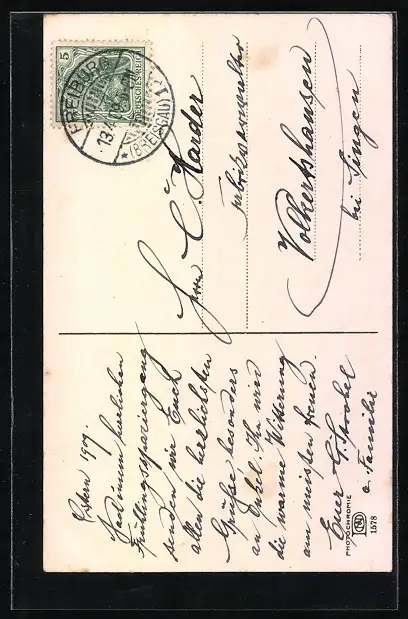 Ostern 1909.
Nach einem herrlichen
Frühlingsspaziergang
senden wir Euch
allen die herzlichsten
Grüße besonders
an Enkel. Ihn wird
die warme Witterung
am meisten freuen.
Euer G. Strobel
u. Familie
PHOTOCHROMIE
1578
5
DEUTSCHES REICH
FREIBURG
(BREISGAU) 1
13
Herrn C. Harder
Fabrikverwalter
Volkertshausen
bei Singen